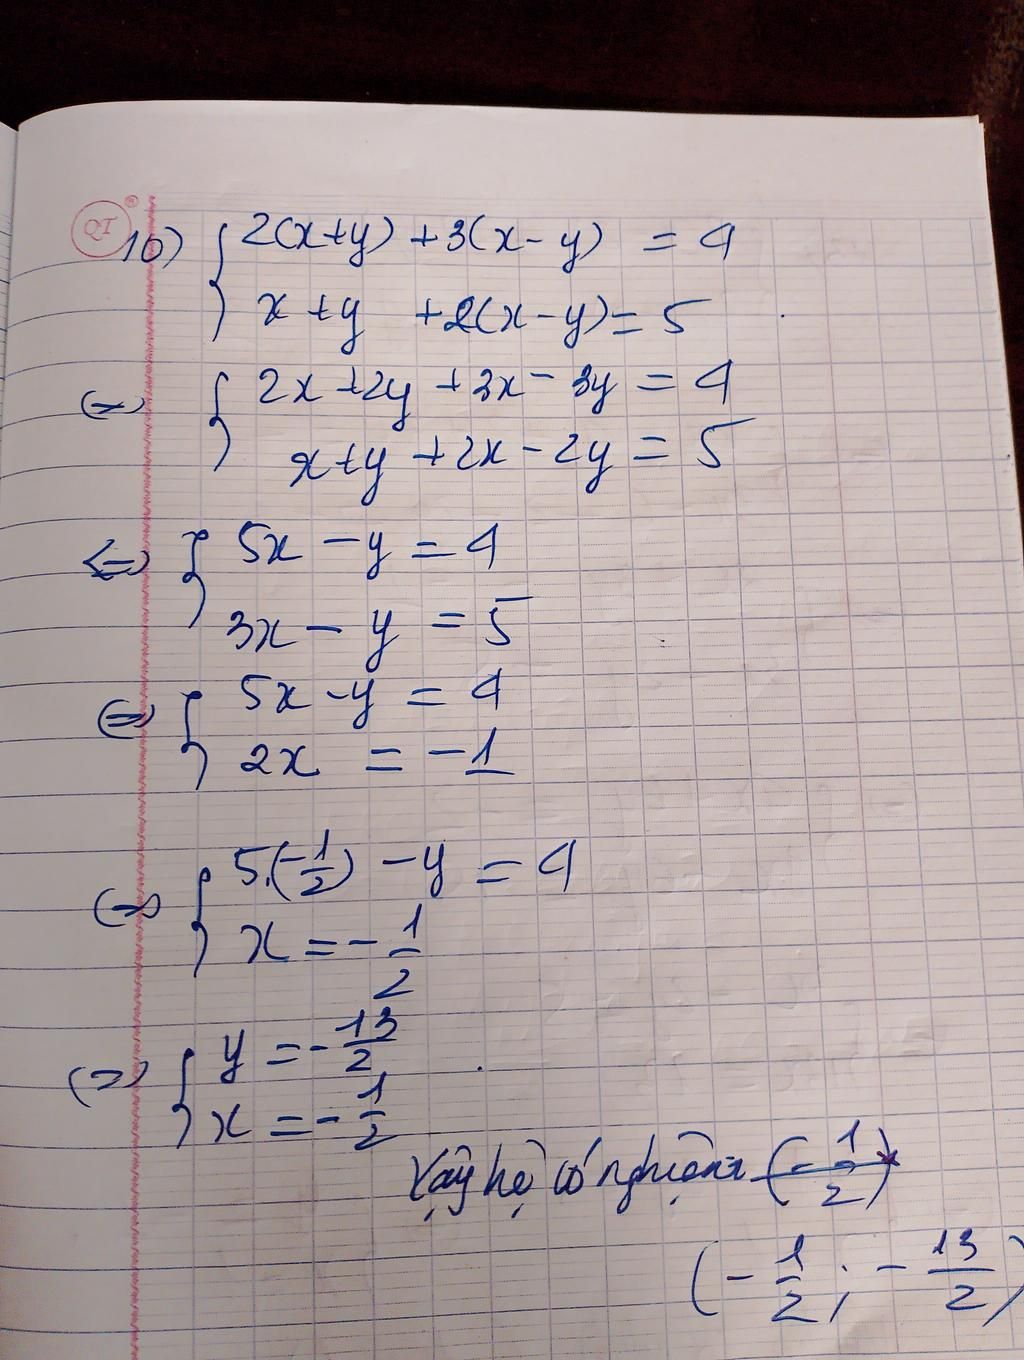 QI ®
10) { 2(x+y) + 3(x-y) = 4
x+y + 2(x-y) = 5
(=) { 2x+2y+3x-3y = 4
x+y+2x-2y = 5
<=> { 5x - y = 4
3x - y = 5
(=) { 5x - y = 4
2x = -1
(=) { 5.(-1/2) - y = 4
x = -1/2
(=) { y = -13/2
x = -1/2
Vậy hệ có nghiệm (-1/2)
(-1/2; -13/2)